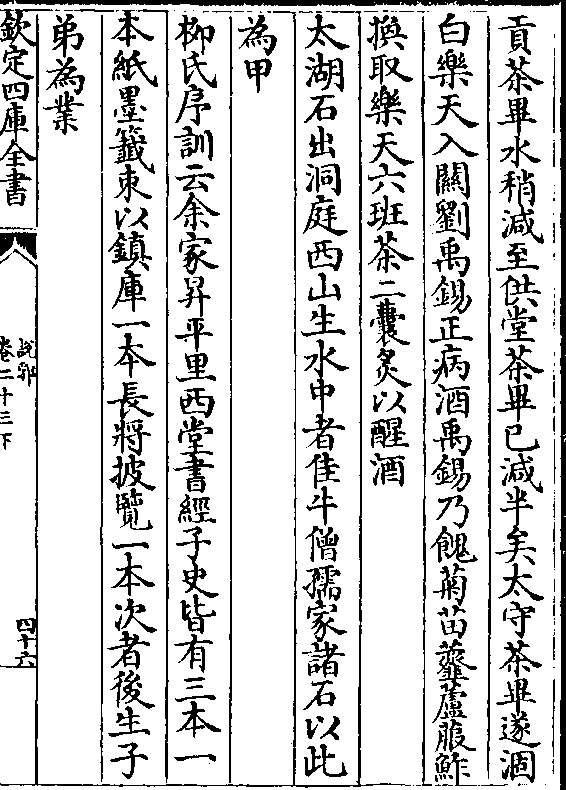 貢茶畢水稍減至供堂茶畢已減半矣太守茶畢遂涸
白樂天入關劉禹錫正病酒禹錫乃餽菊苗虀蘆菔鮓
換取樂天六班茶二囊炙以醒酒
太湖石出洞庭西山生水中者佳牛僧孺家諸石以此
為甲
柳氏序訓云余家昇平里西堂書經子史皆有三本一
本紙墨籤束以鎮庫一本長將披覽一本次者後生子
弟為業
欽定四庫全書
說郛
卷二十三下
四十六